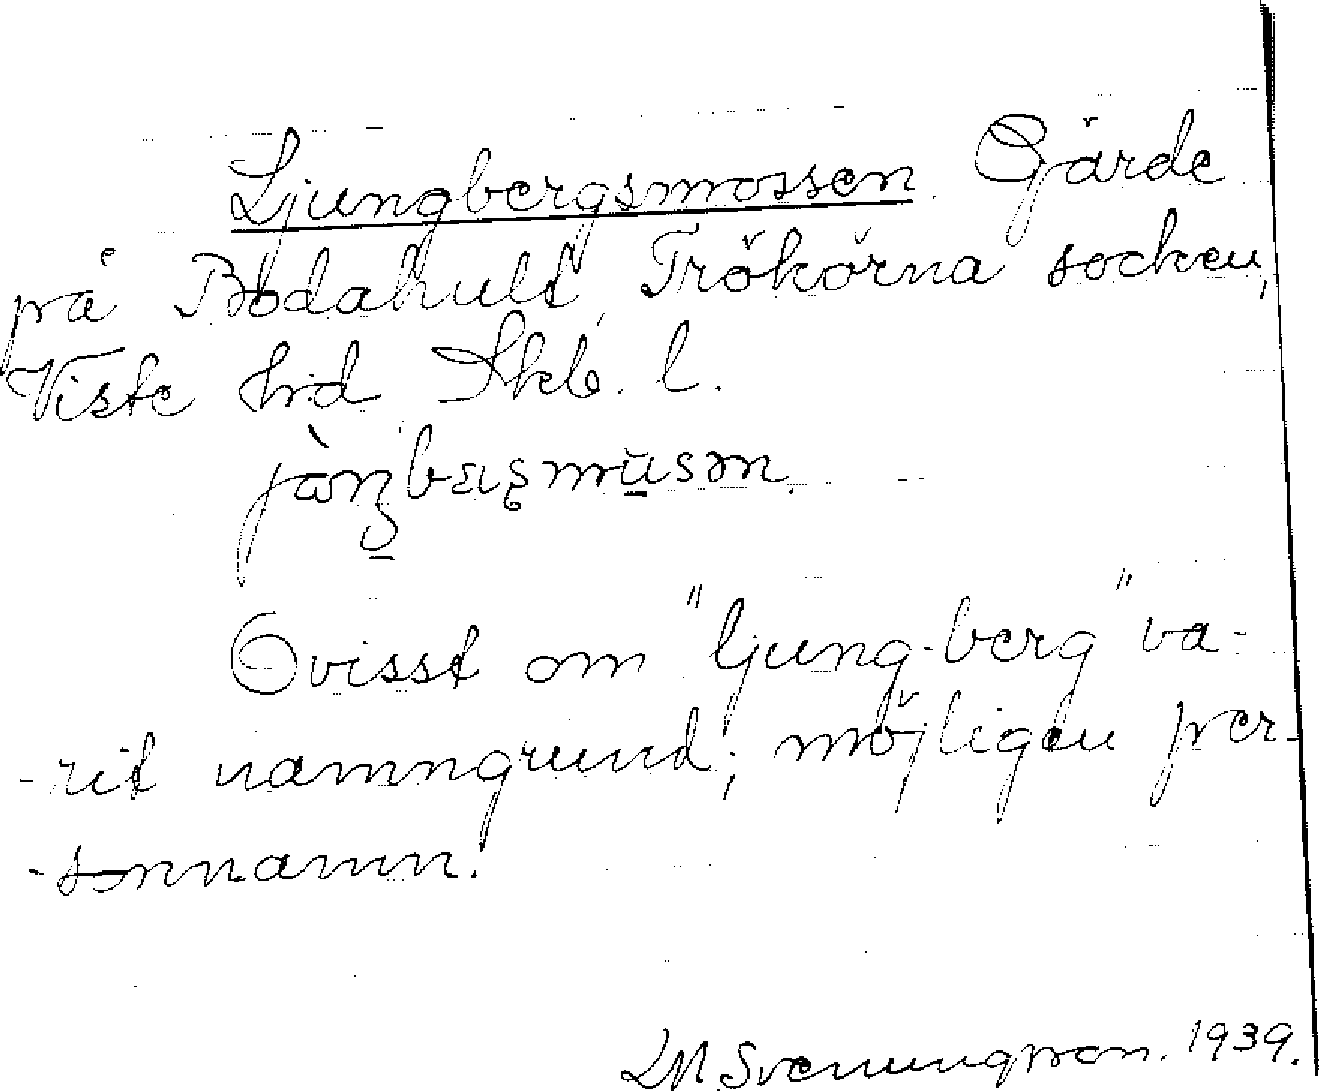 Ljungbergsmossen. Gärde
på Bodahult Trökörna socken,
Viste hd Skb. l.
Ovisst om "ljung-berg" va-
-rit namngrund; möjligen per-
-sonnamn.
LM. Svenungsson. 1939.